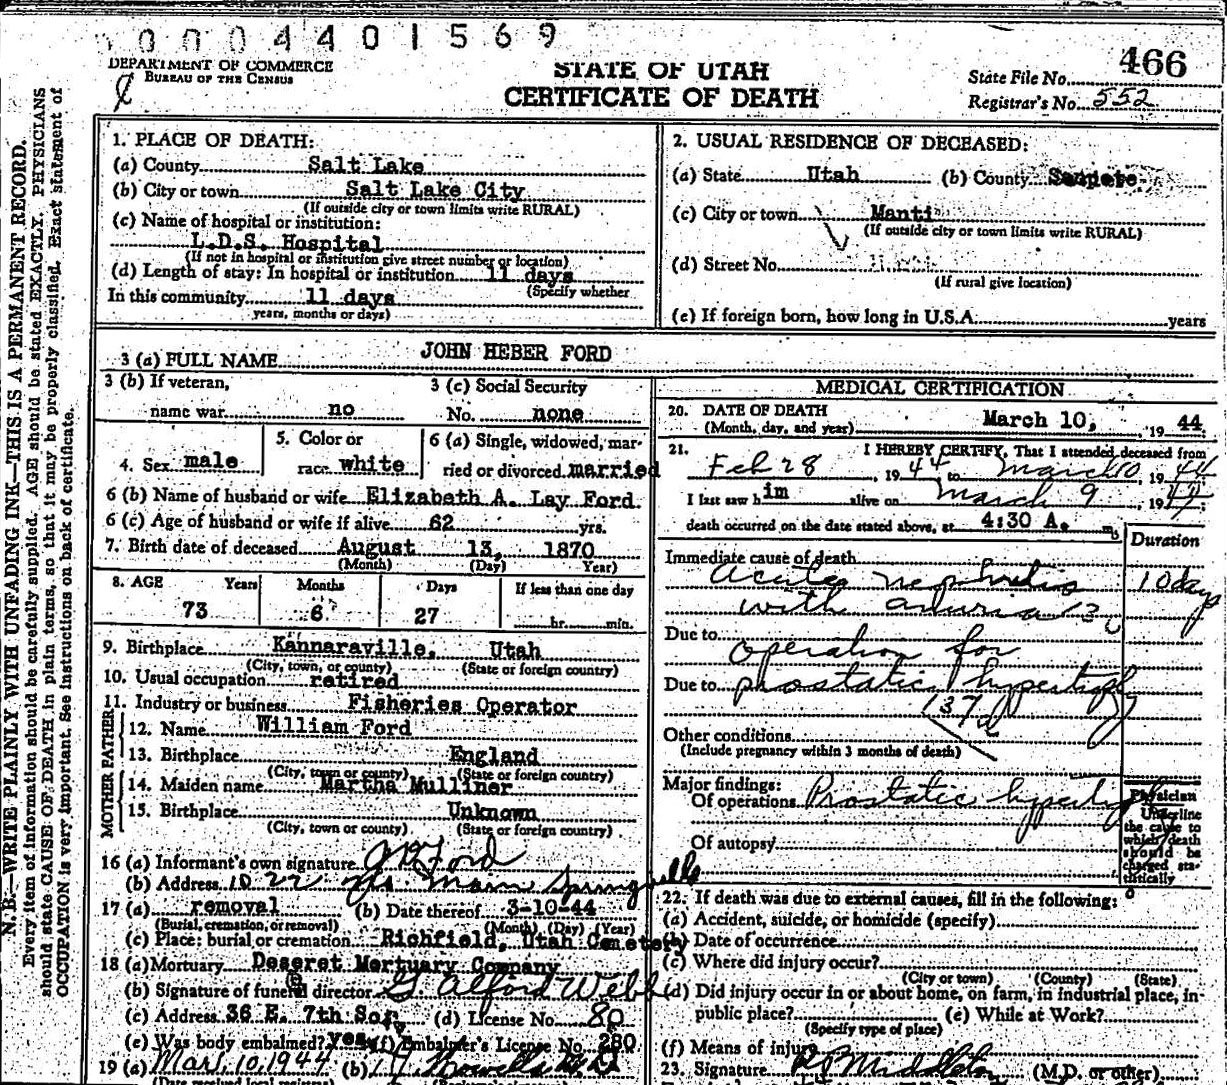 0004401569
DEPARTMENT OF COMMERCE
BUREAU OF THE CENSUS
STATE OF UTAH
CERTIFICATE OF DEATH
466
State File No.
Registrar's No. 552
N. B.—WRITE PLAINLY WITH UNFADING INK—THIS IS A PERMANENT RECORD.
Every item of information should be carefully supplied. AGE should be stated EXACTLY. PHYSICIANS
should state CAUSE OF DEATH in plain terms, so that it may be properly classified. Exact statement of
OCCUPATION is very important. See instructions on back of certificate.
1. PLACE OF DEATH:
(a) County Salt Lake
(b) City or town Salt Lake City
(If outside city or town limits write RURAL)
(c) Name of hospital or institution:
L.D.S. Hospital
(If not in hospital or institution give street number or location)
(d) Length of stay: In hospital or institution 11 days
(Specify whether
In this community 11 days
years, months or days)
2. USUAL RESIDENCE OF DECEASED:
(a) State Utah (b) County Sanpete
(c) City or town Manti
(If outside city or town limits write RURAL)
(d) Street No.
(If rural give location)
(e) If foreign born, how long in U.S.A. years
3 (a) FULL NAME JOHN HEBER FORD
3 (b) If veteran, 3 (c) Social Security
name war no No. none
4. Sex male
5. Color or race white
6 (a) Single, widowed, married or divorced married
6 (b) Name of husband or wife Elizabeth A. Lay Ford
6 (c) Age of husband or wife if alive 62 yrs.
7. Birth date of deceased August 13, 1870
(Month) (Day) Year)
8. AGE Years Months Days If less than one day
73 6 27 hr. min.
9. Birthplace Kannaraville, Utah
(City, town, or county) (State or foreign country)
10. Usual occupation retired
11. Industry or business Fisheries Operator
FATHER
12. Name William Ford
13. Birthplace England
(City, town or county) (State or foreign country)
MOTHER
14. Maiden name Martha Mulliner
15. Birthplace Unknown
(City, town or county) (State or foreign country)
16 (a) Informant's own signature Ford
(b) Address 1022 Main Springville
17 (a) removal (b) Date thereof 3-10-44
(Burial, cremation, or removal) (Month) (Day) (Year)
(c) Place: burial or cremation Richfield, Utah Cemetery
18 (a) Mortuary Deseret Mortuary Company
(b) Signature of funeral director G Alford Webb
(c) Address 36 E. 7th So. (d) License No. 80
(e) Was body embalmed? Yes (f) Embalmer's License No. 280
19 (a) Mar. 10, 1944 (b)
(Date received local registrar)
MEDICAL CERTIFICATION
20. DATE OF DEATH
(Month, day, and year) March 10, 19 44
21. I HEREBY CERTIFY, That I attended deceased from
Feb 28, 1944 to March 10, 1944
I last saw him alive on March 9 1944
death occurred on the date stated above, at 4:30 A. m.
Duration
Immediate cause of death
Acute nephritis 10 days
with anuria 13
Due to operation for
Due to prostatic hypertrophy
137a
Other conditions
(Include pregnancy within 3 months of death)
Major findings:
Of operations Prostatic hypertrophy
Of autopsy
Physician
Underline
the cause to
which death
should be
charged sta-
tistically
22. If death was due to external causes, fill in the following:
(a) Accident, suicide, or homicide (specify)
(b) Date of occurrence
(c) Where did injury occur?
(City or town) (County) (State)
(d) Did injury occur in or about home, on farm, in industrial place, in
public place? (e) While at Work?
(Specify type of place)
(f) Means of injury
23. Signature Middleton (M.D. or other)